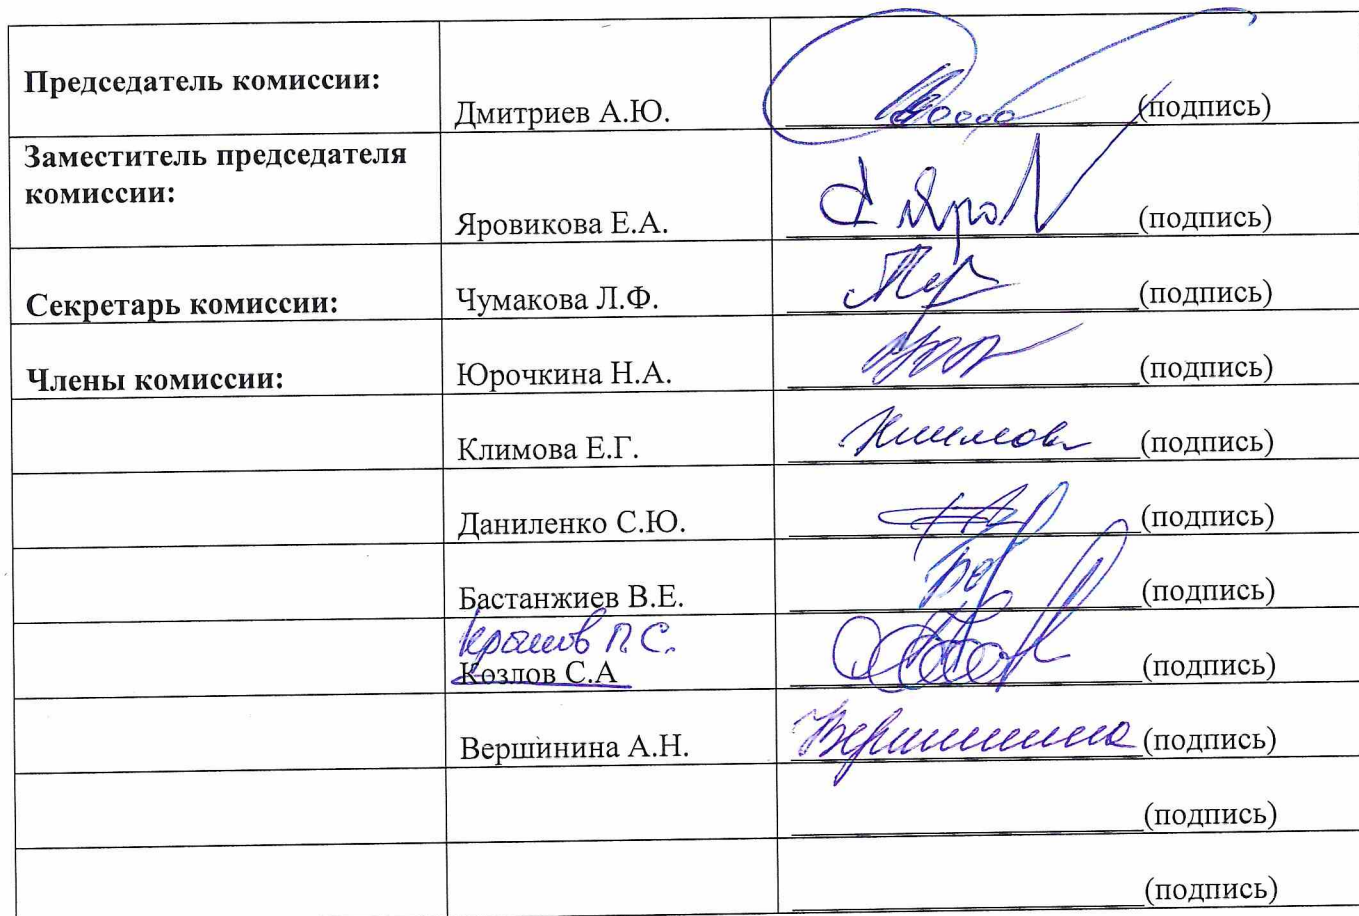 Председатель комиссии:
Дмитриев А.Ю.
(подпись)
Заместитель председателя
комиссии:
Яровикова Е.А.
(подпись)
Секретарь комиссии:
Чумакова Л.Ф.
(подпись)
Члены комиссии:
Юрочкина Н.А.
(подпись)
Климова Е.Г.
Климова
(подпись)
Даниленко С.Ю.
(подпись)
Бастанжиев В.Е.
(подпись)
П.С.
Козлов С.А
(подпись)
Вершинина А.Н.
Вершинина
(подпись)
(подпись)
(подпись)